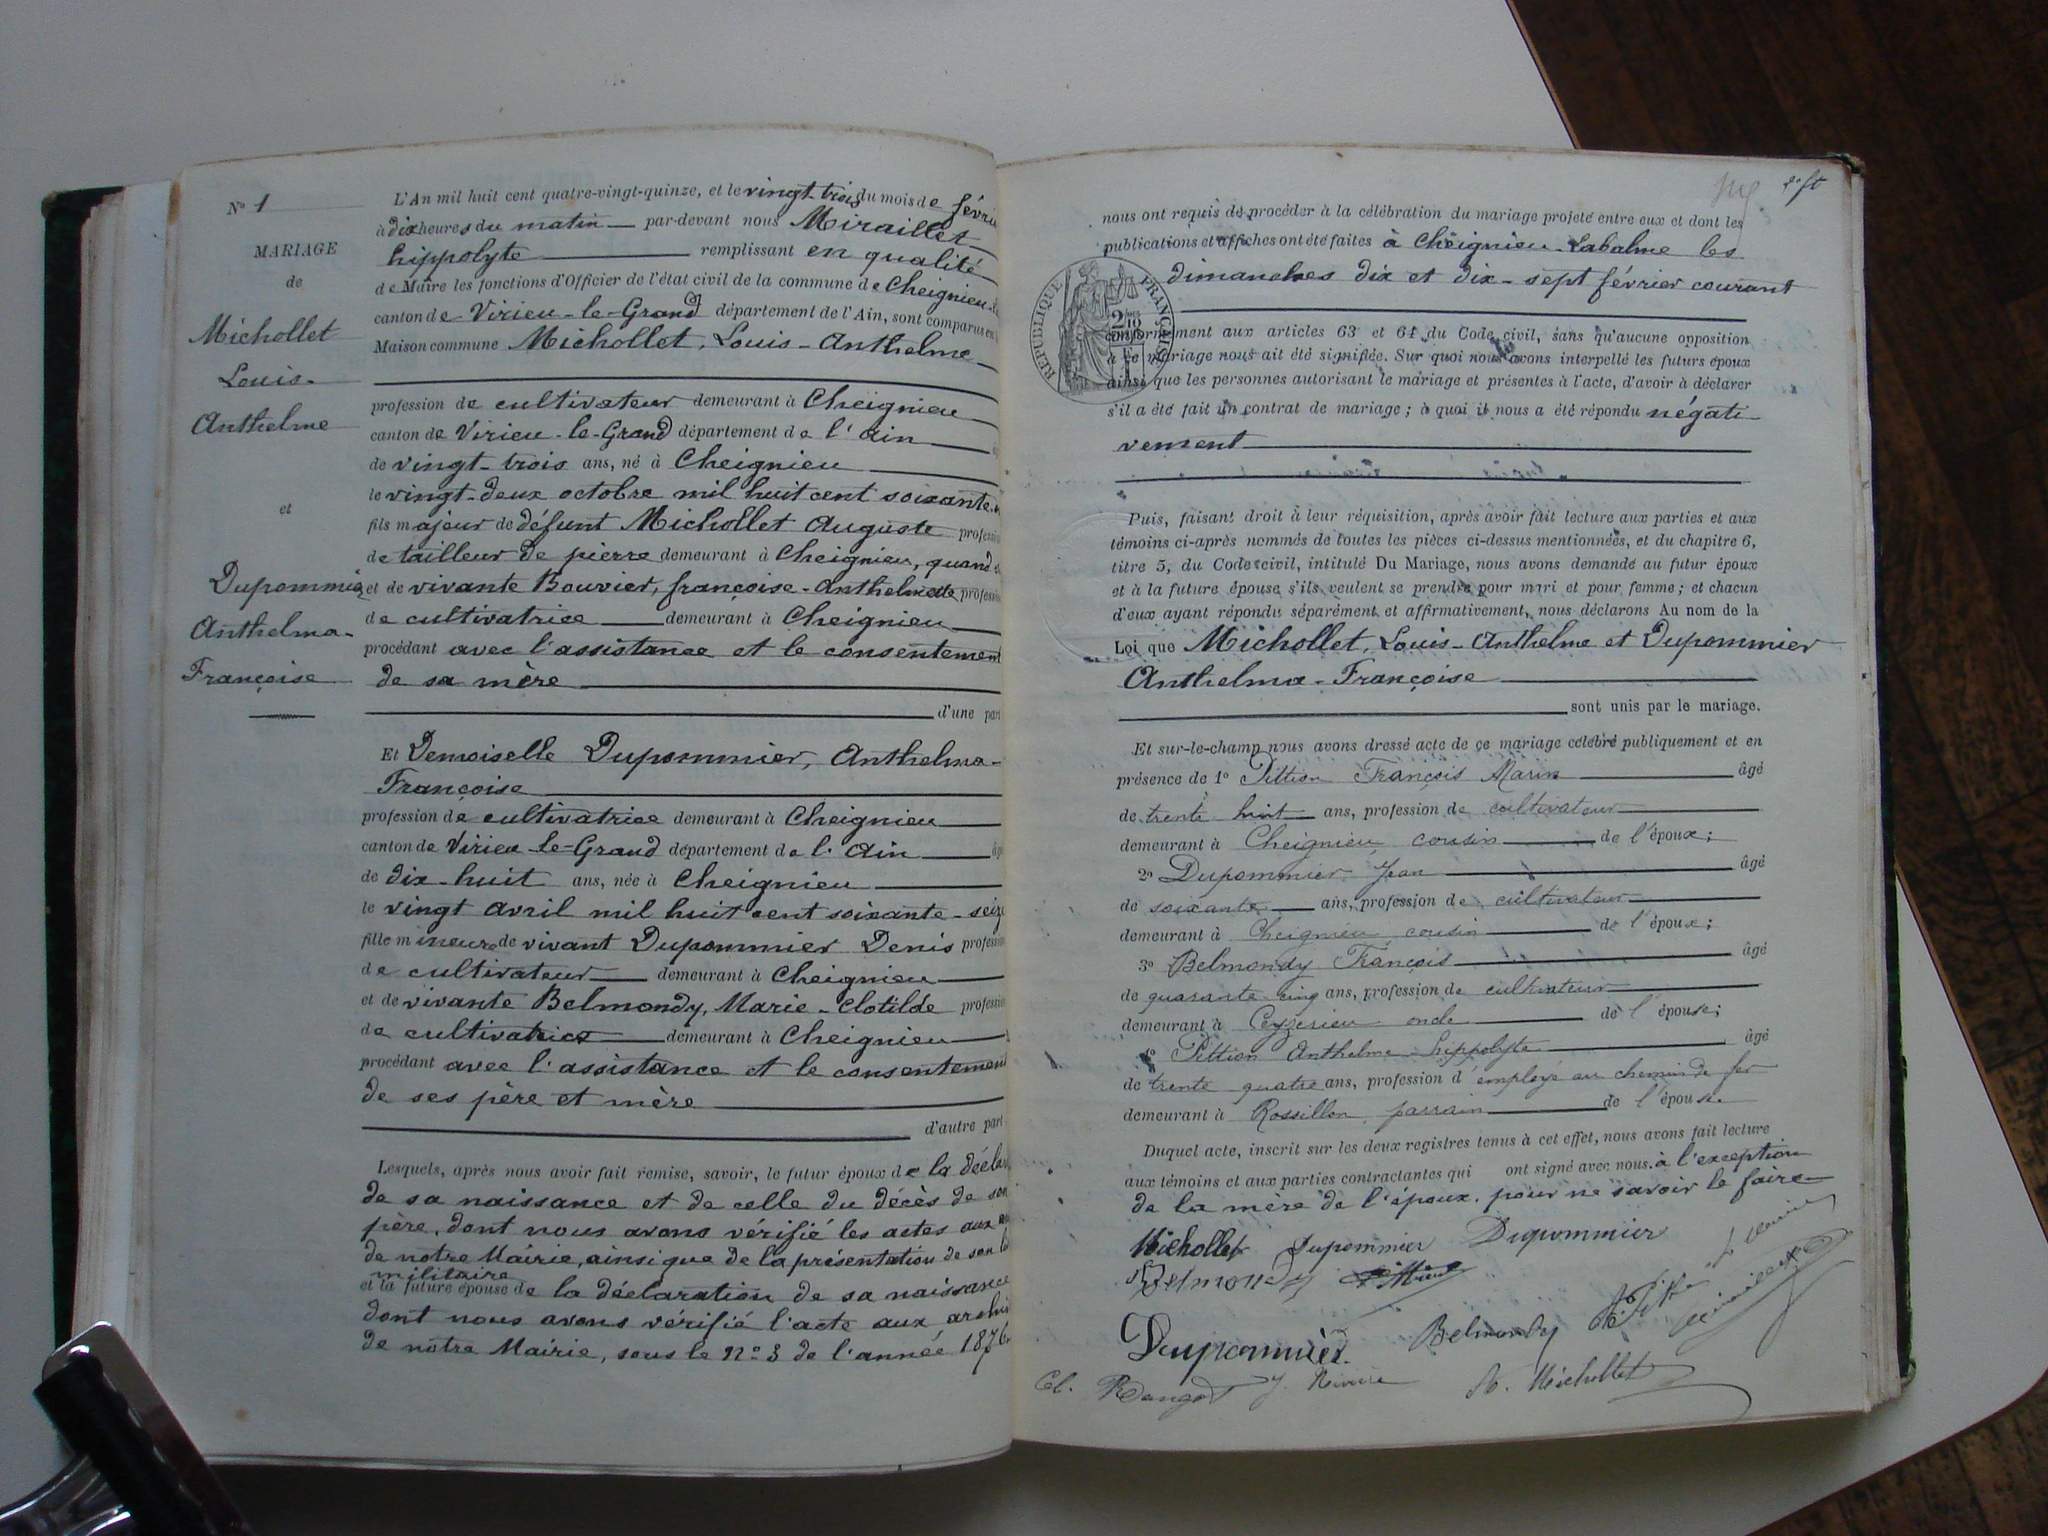 N° 1
MARIAGE
de
Michollet
Louis-
Anthelme
et
Dupommier
Anthelma-
Françoise
L'An mil huit cent quatre-vingt-quinze, et le vingt trois du mois de févri
à dix heures du matin par-devant nous Miraillet
hippolyte remplissant en qualité
de Maire les fonctions d'Officier de l'état civil de la commune de Cheignieu-
canton de Virieu-le-Grand département de l'Ain, sont comparus en
Maison commune Michollet, Louis-Anthelme
profession de cultivateur demeurant à Cheignieu
canton de Virieu-le-Grand département de l'ain
de vingt-trois ans, né à Cheignieu
le vingt-deux octobre mil huit cent soixante-
fils majeur de défunt Michollet Auguste profession
de tailleur de pierre demeurant à Cheignieu, quand
et de vivante Bouvier, françoise-Anthelmette profession
de cultivatrice demeurant à Cheignieu
procédant avec l'assistance et le consentement
de sa mère
d'une part
Et Demoiselle Dupommier, Anthelma-
Françoise
profession de cultivatrice demeurant à Cheignieu
canton de Virieu-le-Grand département de l'Ain
de dix-huit ans, née à Cheignieu
le vingt avril mil huit cent soixante-seize
fille mineure de vivant Dupommier Denis profession
de cultivateur demeurant à Cheignieu
et de vivante Belmondy, Marie-Clotilde profession
de cultivatrice demeurant à Cheignieu
procédant avec l'assistance et le consentement
de ses père et mère
d'autre part
Lesquels, après nous avoir fait remise, savoir, le futur époux de la déclar
de sa naissance et de celle du décès de son
père, dont nous avons vérifié les actes aux
de notre Mairie, ainsi que de la présentation de son
militaire
et la future épouse de la déclaration de sa naissance
dont nous avons vérifié l'acte aux archi
de notre Mairie, sous le N° 3 de l'année 1876
2e ft
nous ont requis de procéder à la célébration du mariage projeté entre eux et dont les
publications et affiches ont été faites à Cheignieu-Labalme les
dimanches dix et dix-sept février courant
RÉPUBLIQUE FRANÇAISE
2/10
conformément aux articles 63 et 64 du Code civil, sans qu'aucune opposition
à ce mariage nous ait été signifiée. Sur quoi nous avons interpellé les futurs époux
ainsi que les personnes autorisant le mariage et présentes à l'acte, d'avoir à déclarer
s'il a été fait un contrat de mariage; à quoi il nous a été répondu négati-
vement
Puis, faisant droit à leur réquisition, après avoir fait lecture aux parties et aux
témoins ci-après nommés de toutes les pièces ci-dessus mentionnées, et du chapitre 6,
titre 5, du Code civil, intitulé Du Mariage, nous avons demandé au futur époux
et à la future épouse s'ils veulent se prendre pour mari et pour femme; et chacun
d'eux ayant répondu séparément et affirmativement, nous déclarons Au nom de la
Loi que Michollet, Louis-Anthelme et Dupommier
Anthelma-Françoise
sont unis par le mariage.
Et sur-le-champ nous avons dressé acte de ce mariage célébré publiquement et en
présence de 1° Pittion François Marin âgé
de trente huit ans, profession de cultivateur
demeurant à Cheignieu cousin de l'époux;
2° Dupommier Jean âgé
de soixante ans, profession de cultivateur
demeurant à Cheignieu cousin de l'époux;
3° Belmondy François âgé
de quarante cinq ans, profession de cultivateur
demeurant à Ceyzerieu oncle de l'épouse;
4° Pittion Anthelme hippolyte âgé
de trente quatre ans, profession d'employé au chemin de fer
demeurant à Rossillon, parrain de l'épouse.
Duquel acte, inscrit sur les deux registres tenus à cet effet, nous avons fait lecture
aux témoins et aux parties contractantes qui ont signé avec nous. à l'exception
de la mère de l'époux, pour ne savoir le faire
Michollet Dupommier Dupommier
Belmondy Pittion
Dupommier. Belmondy
A. Michollet